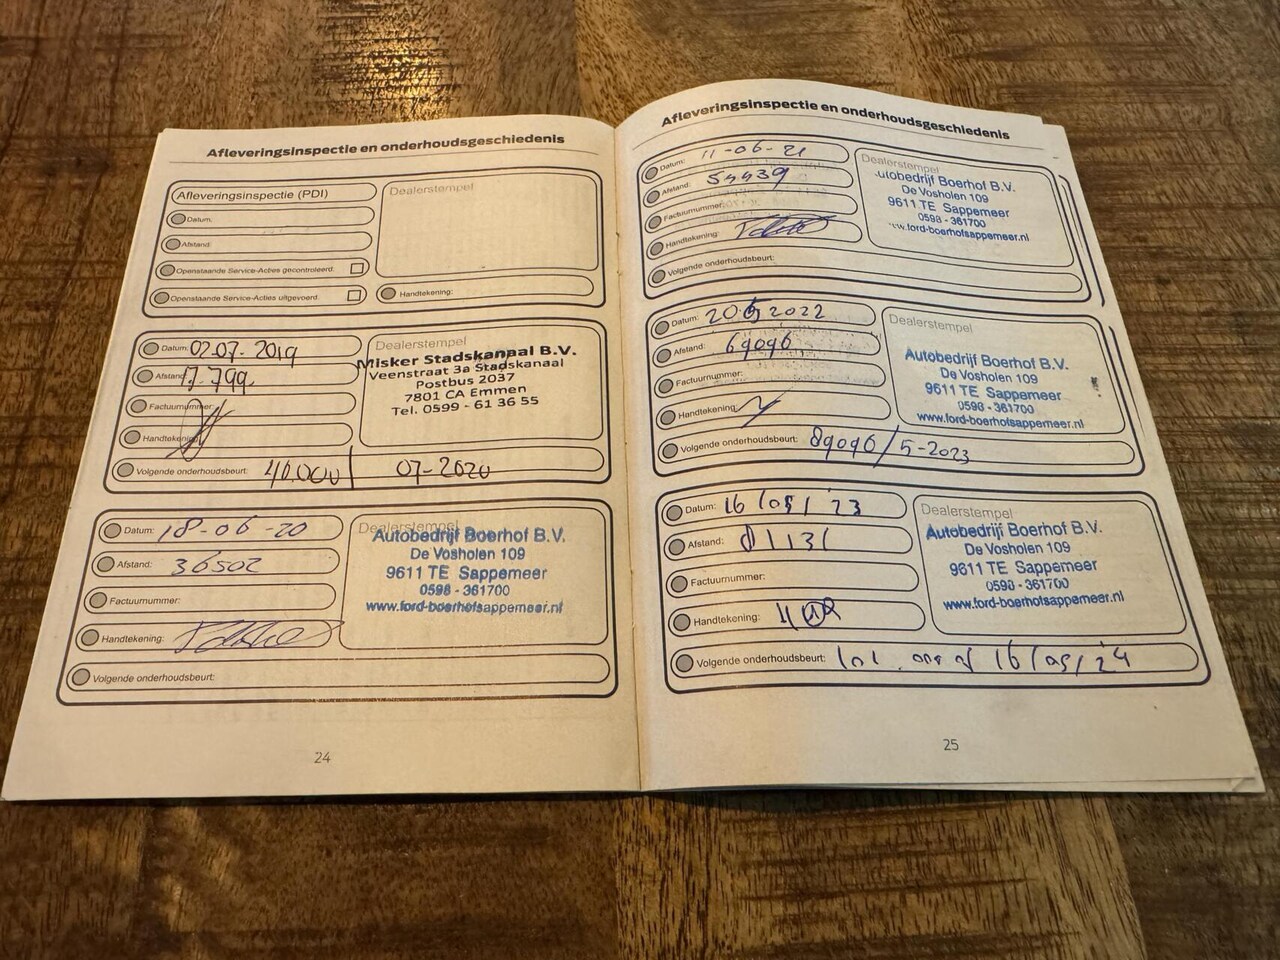 Afleveringsinspectie en onderhoudsgeschiedenis
Afleveringsinspectie (PDI)
Datum:
Afstand:
Openstaande Service-Acties gecontroleerd:
Openstaande Service-Acties uitgevoerd:
Dealerstempel
Handtekening:
Datum: 02-07-2019
Afstand: 17.799
Factuurnummer:
Handtekening:
Volgende onderhoudsbeurt: 40.000 / 07-2020
Dealerstempel
Misker Stadskanaal B.V.
Veenstraat 3a Stadskanaal
Postbus 2037
7801 CA Emmen
Tel. 0599 - 61 36 55
Datum: 18-06-20
Afstand: 36502
Factuurnummer:
Handtekening:
Volgende onderhoudsbeurt:
Dealerstempel
Autobedrijf Boerhof B.V.
De Vosholen 109
9611 TE Sappemeer
0598 - 361700
www.ford-boerhofsappemeer.nl
24
Afleveringsinspectie en onderhoudsgeschiedenis
Datum: 11-06-21
Afstand: 54439
Factuurnummer:
Handtekening:
Volgende onderhoudsbeurt:
Dealerstempel
utobedrijf Boerhof B.V.
De Vosholen 109
9611 TE Sappemeer
0598 - 361700
www.ford-boerhofsappemeer.nl
Datum: 20 5 2022
Afstand: 69096
Factuurnummer:
Handtekening:
Volgende onderhoudsbeurt: 89096/5-2023
Dealerstempel
Autobedrijf Boerhof B.V.
De Vosholen 109
9611 TE Sappemeer
0598 - 361700
www.ford-boerhofsappemeer.nl
Datum: 16/05/'23
Afstand: 81131
Factuurnummer:
Handtekening:
Volgende onderhoudsbeurt: 101 of 16/05/'24
Dealerstempel
Autobedrijf Boerhof B.V.
De Vosholen 109
9611 TE Sappemeer
0598 - 361700
www.ford-boerhofsappemeer.nl
25